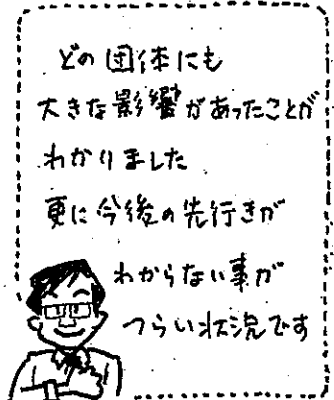 どの団体にも
大きな影響があったことが
わかりました
更に今後の先行きが
わからない事が
つらい状況です